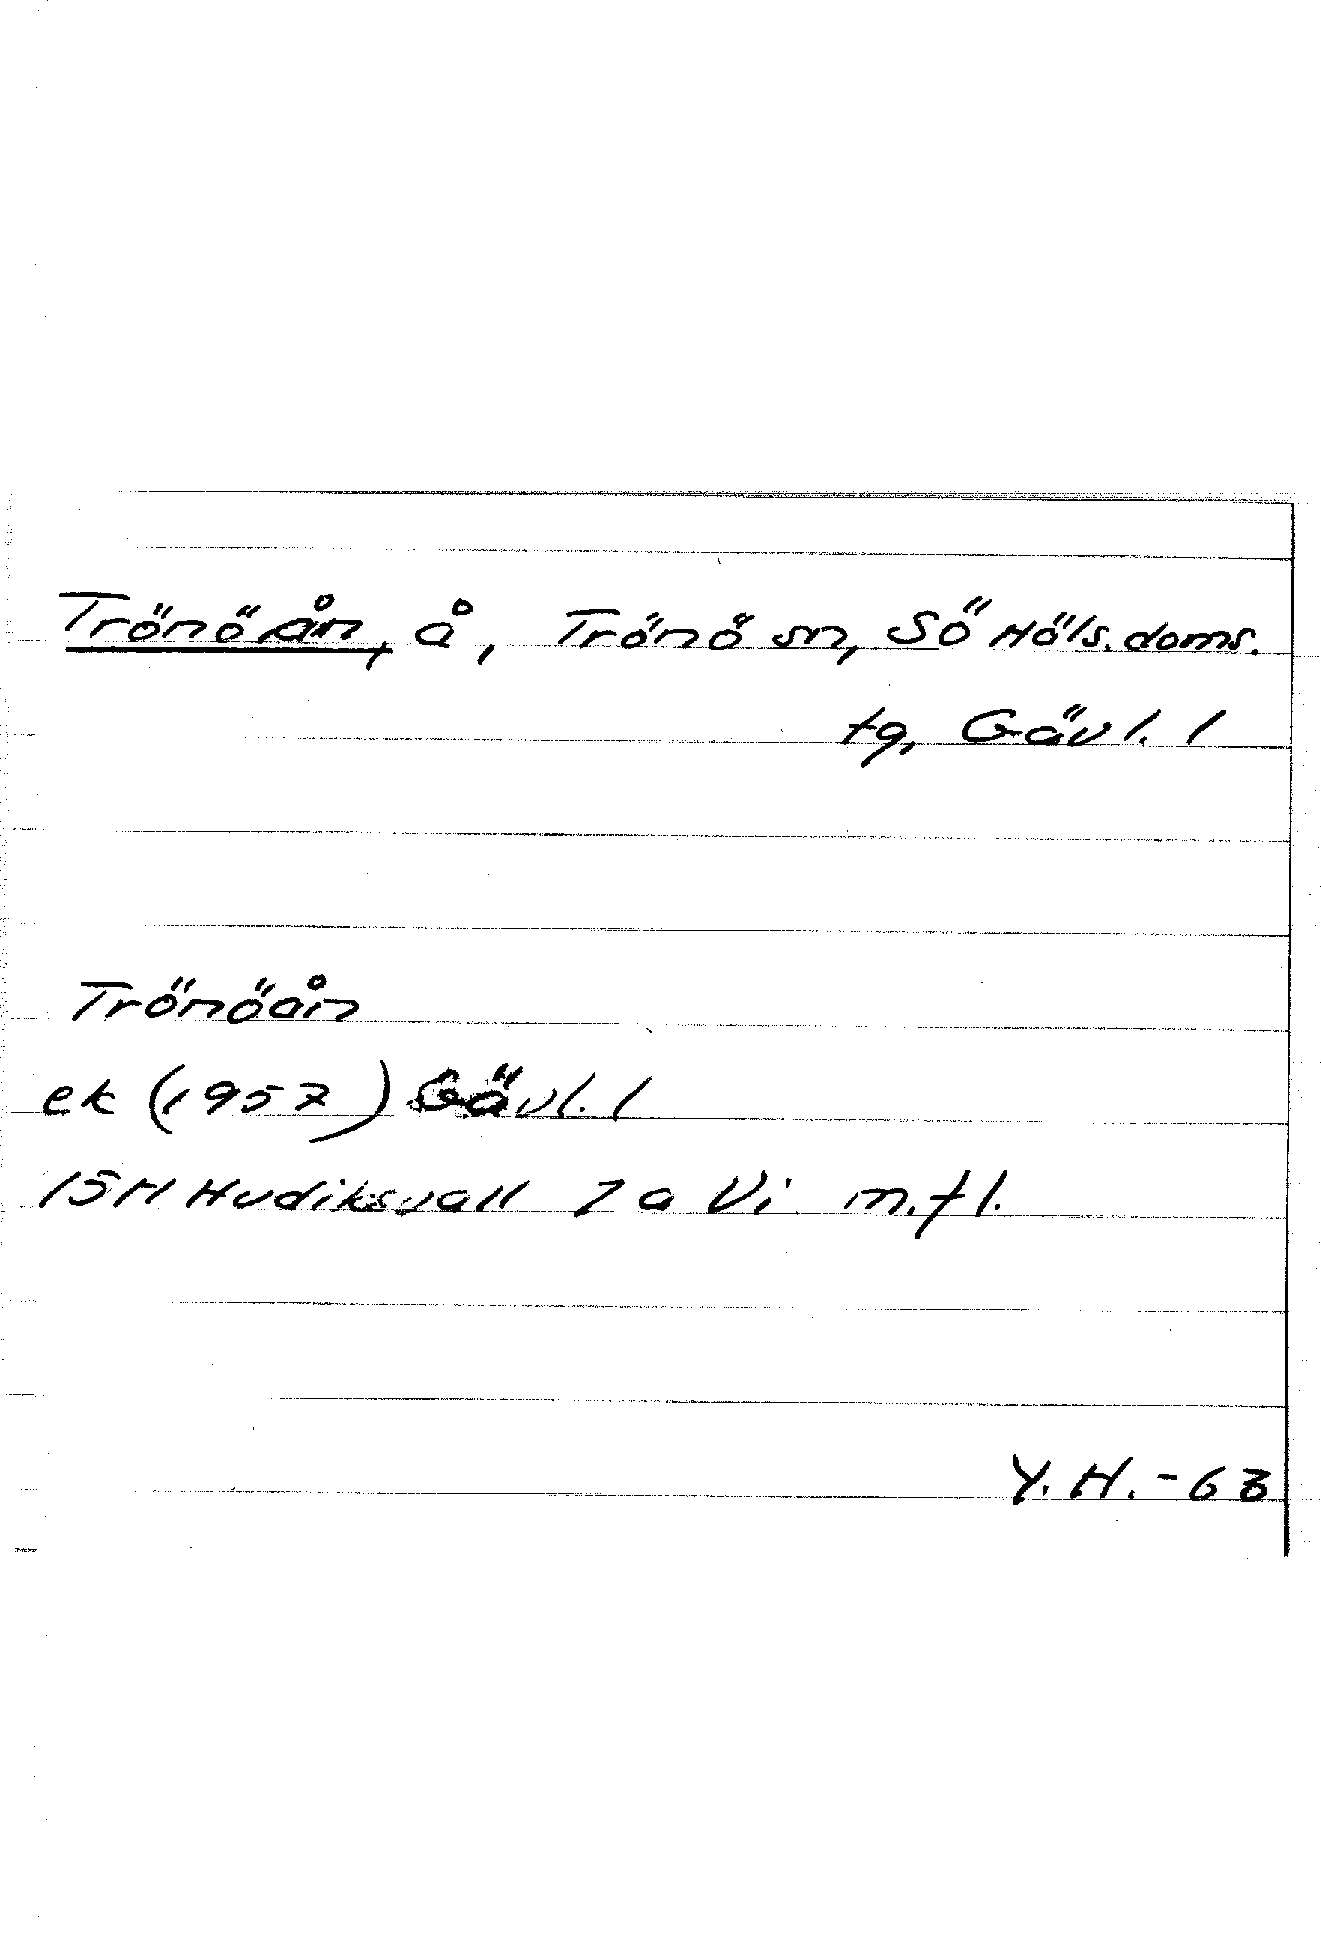 Trönöån, å, Trönö sn, Sö Häls. doms.
tg, Gävl. l
Trönöån
ek (1957) Gävl. l
15H Hudiksvall 7 a Vi m.fl.
Y.H. -63